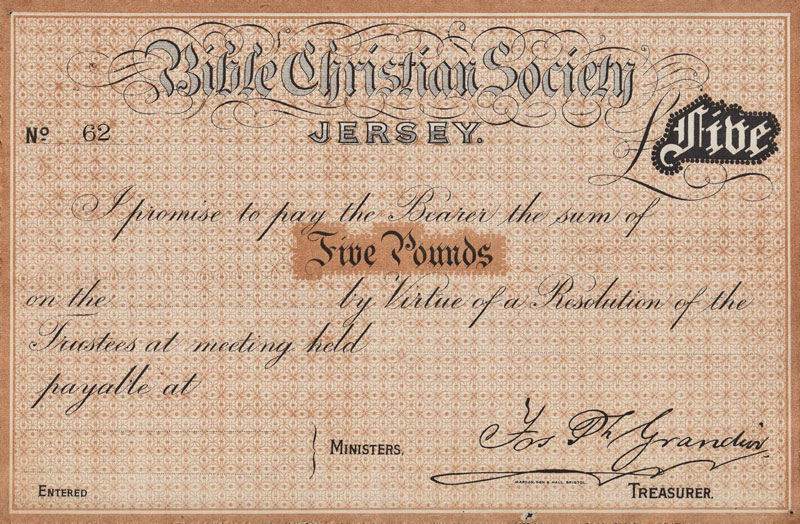 Bible Christian Society
JERSEY.
Nº 62
£ Five
I promise to pay the Bearer the sum of
Five Pounds
on the by Virtue of a Resolution of the
Trustees at meeting held
payable at
Jos Ph Grandin
MINISTERS.
ENTERED
TREASURER.